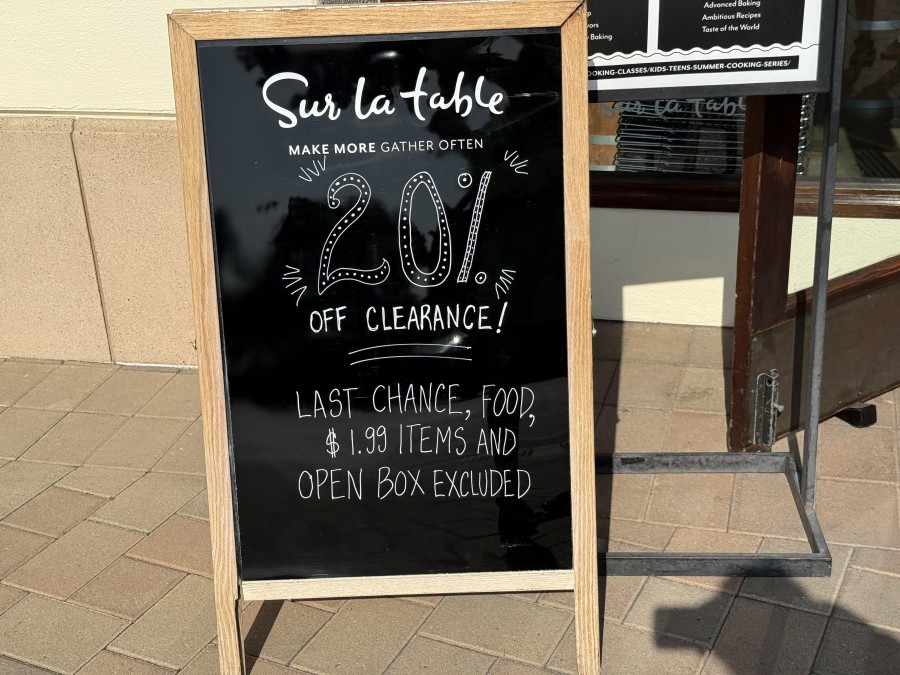 Sur la table
MAKE MORE GATHER OFTEN
20%
OFF CLEARANCE!
LAST CHANCE, FOOD,
$1.99 ITEMS AND
OPEN BOX EXCLUDED
Advanced Baking
Ambitious Recipes
Taste of the World
Baking
OOKING-CLASSES/KIDS-TEENS-SUMMER-COOKING-SERIES/
Sur la tabl